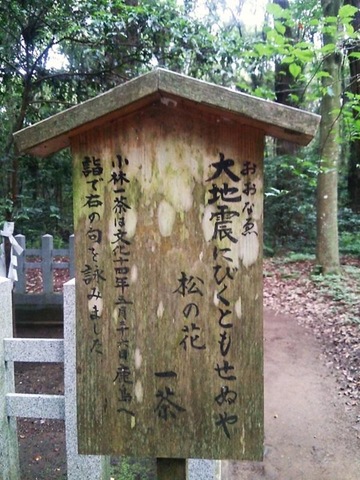 おおなゑ
大地震にびくともせぬや
松の花
一茶
小林一茶は文化十四年五月二十六日鹿島へ
詣で右の句を詠みました